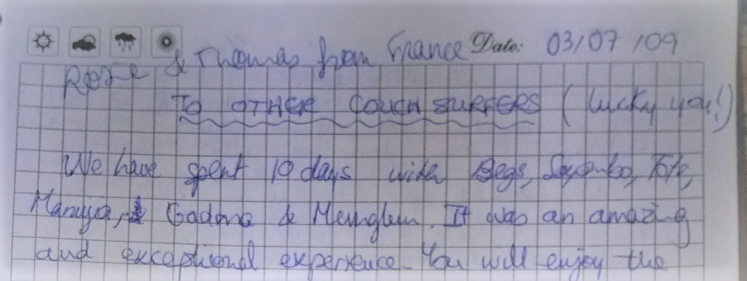 Rose & Thomas from France Date: 03/07/09
TO OTHER COUCH SURFERS (lucky you!)
We have spent 10 days with Begs,
Gadona & It was an amazing
and exceptional experience. You will enjoy the